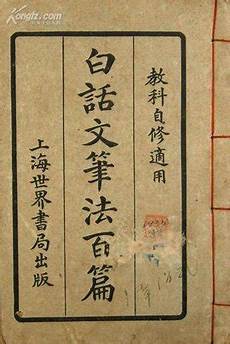 Kongfz.com
教科自修適用
白話文筆法百篇
上海世界書局出版